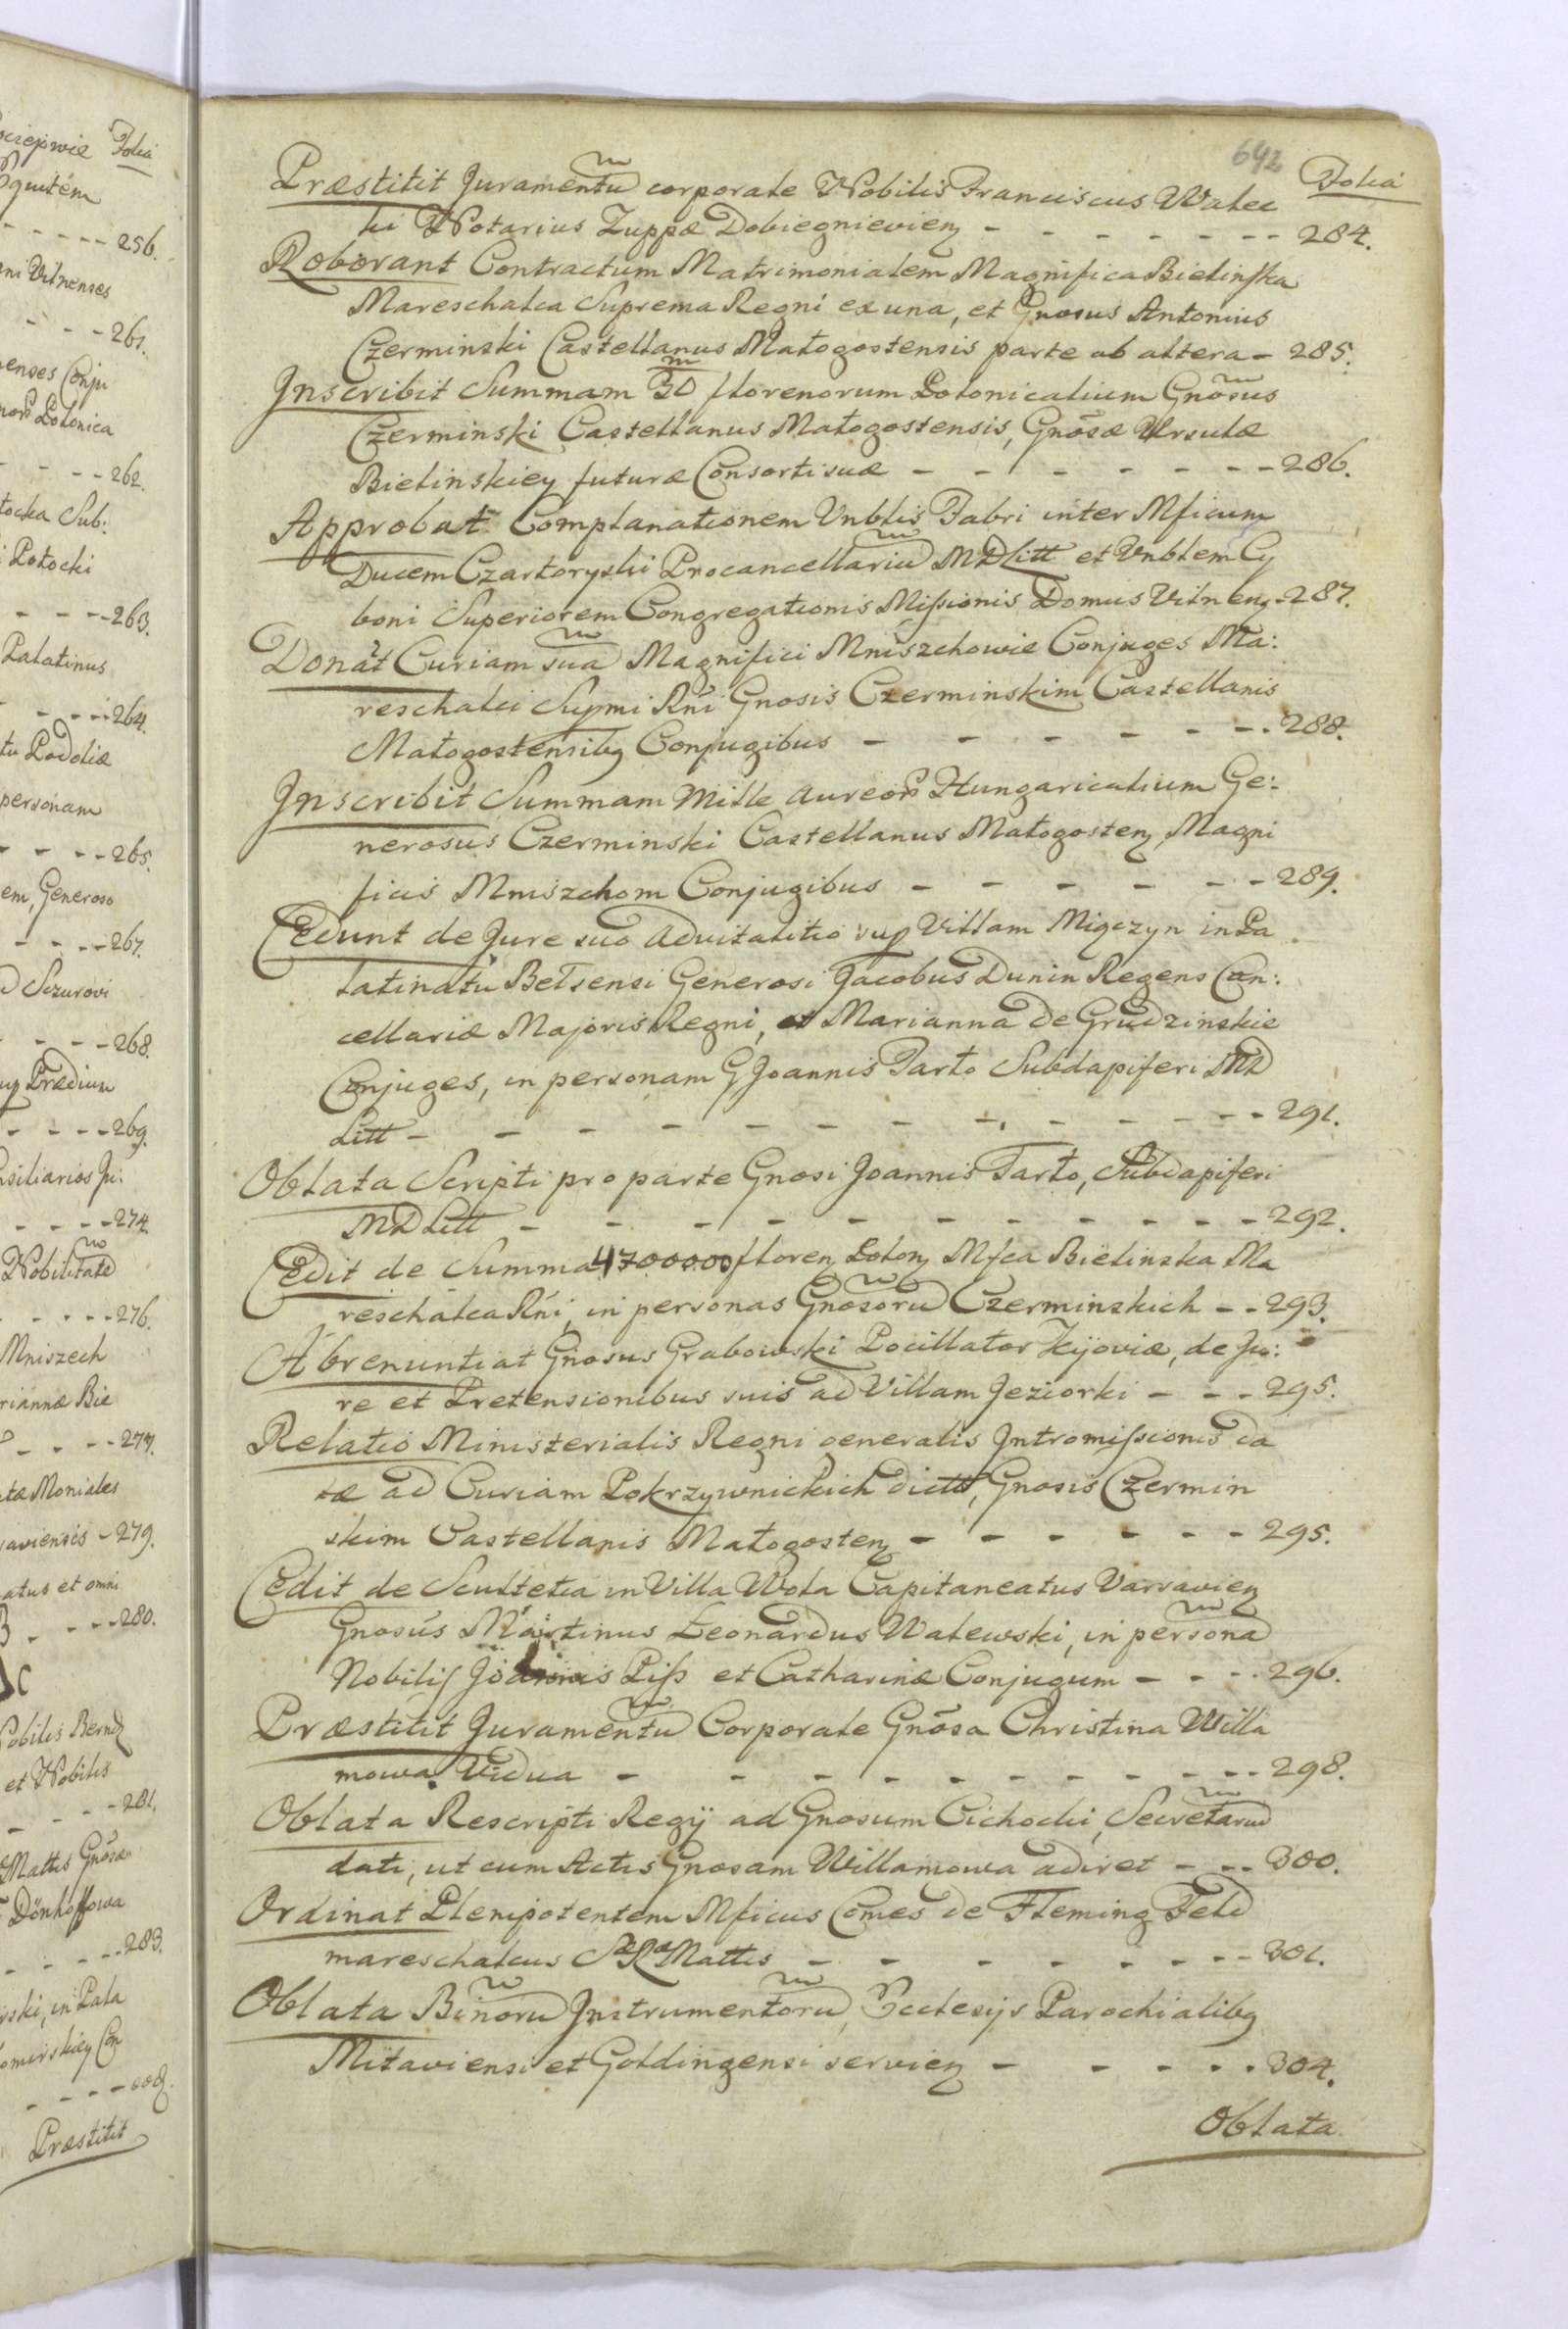 642
Folia
Præstitit Juramentu corporale Nobilis Franciscus Walec
ki Notarius Zuppæ Dobiegnievien - - - - - - - 284.
Roborant Contractum Matrimonialem Magnifica Bielinska
Mareschalca Suprema Regni ex una, et Gnosus Antonius
Czerminski Castellanus Małogostensis parte ab altera - 285.
Inscribit Summam 30 florenorum Polonicalium Gnosus
Czerminski Castellanus Małogostensis, Gnosæ Ursulæ
Bielinskiey futuræ Consorti suæ - - - - - - - 286.
Approbat Complanationem Vnblis Fabri inter Mficum
Ducem Czartoryski Procancellariu MDLitt et Vnblem Cy
boni Superiorem Congregationis Missionis Domus Vilnen - 287.
Donat Curiam sua Magnifici Mniszchowie Conjuges Ma:
reschalci Supmi Rni Gnosis Czerminskim Castellanis
Małogostensibq Conjugibus - - - - - - - 288.
Inscribit Summam Mille Aureor Hungaricalium Ge:
nerosus Czerminski Castellanus Małogosten, Magni
ficis Mniszchom Conjugibus - - - - - - 289.
Cedunt de Jure suo Advitalitio sup Villam Migczyn in Pa
latinatu Belsensi Generosi Jacobus Dunin Regens Can:
cellariæ Majoris Regni, et Marianna de Grudzinskie
Conjuges, in personam G Joannis Tarło Subdapiferi MD
Litt - - - - - - - - - - - 291.
Oblata Scripti pro parte Gnosi Joannis Tarło, Subdapiferi
MDLitt - - - - - - - - - - 292.
Cedit de Summa 4700000 floren Polon Mfca Bielinska Ma
reschalca Rni in personas Gnosoru Czerminskich - - 293.
Abrenuntiat Gnosus Grabowski Pocillator Kijoviæ, de Ju:
re et Pretensionibus suis ad Villam Jeziorki - - - 295.
Relatio Ministerialis Regni generalis Intromissionis da
tæ ad Curiam Pokrzywnickich dictt, Gnosis Czermin
skim Castellanis Małogosten - - - - - - 295.
Cedit de Scultetia in Villa Wola Capitaneatus Varsavien
Gnosus Martinus Leonardus Walewski, in persona
Nobilis Joannis Piss et Catharinæ Conjugum - - - - 296.
Præstitit Juramentu Corporale Gnosa Christina Willa
mowa Vidua - - - - - - - - - - 298.
Oblata Rescripti Regij ad Gnosum Cichocki, Secretariu
dati, ut cum Actis Gnosam Willamowa adiret - - - 300.
Ordinat Plenipotentem Mficus Comes de Fleming Feld
mareschalcus SæRæMattis - - - - - - - 301.
Oblata Binoru Instrumentoru, Ecclesijs Parochialibq
Mitaviensi et Goldingensi servien - - - - - 304.
Oblata